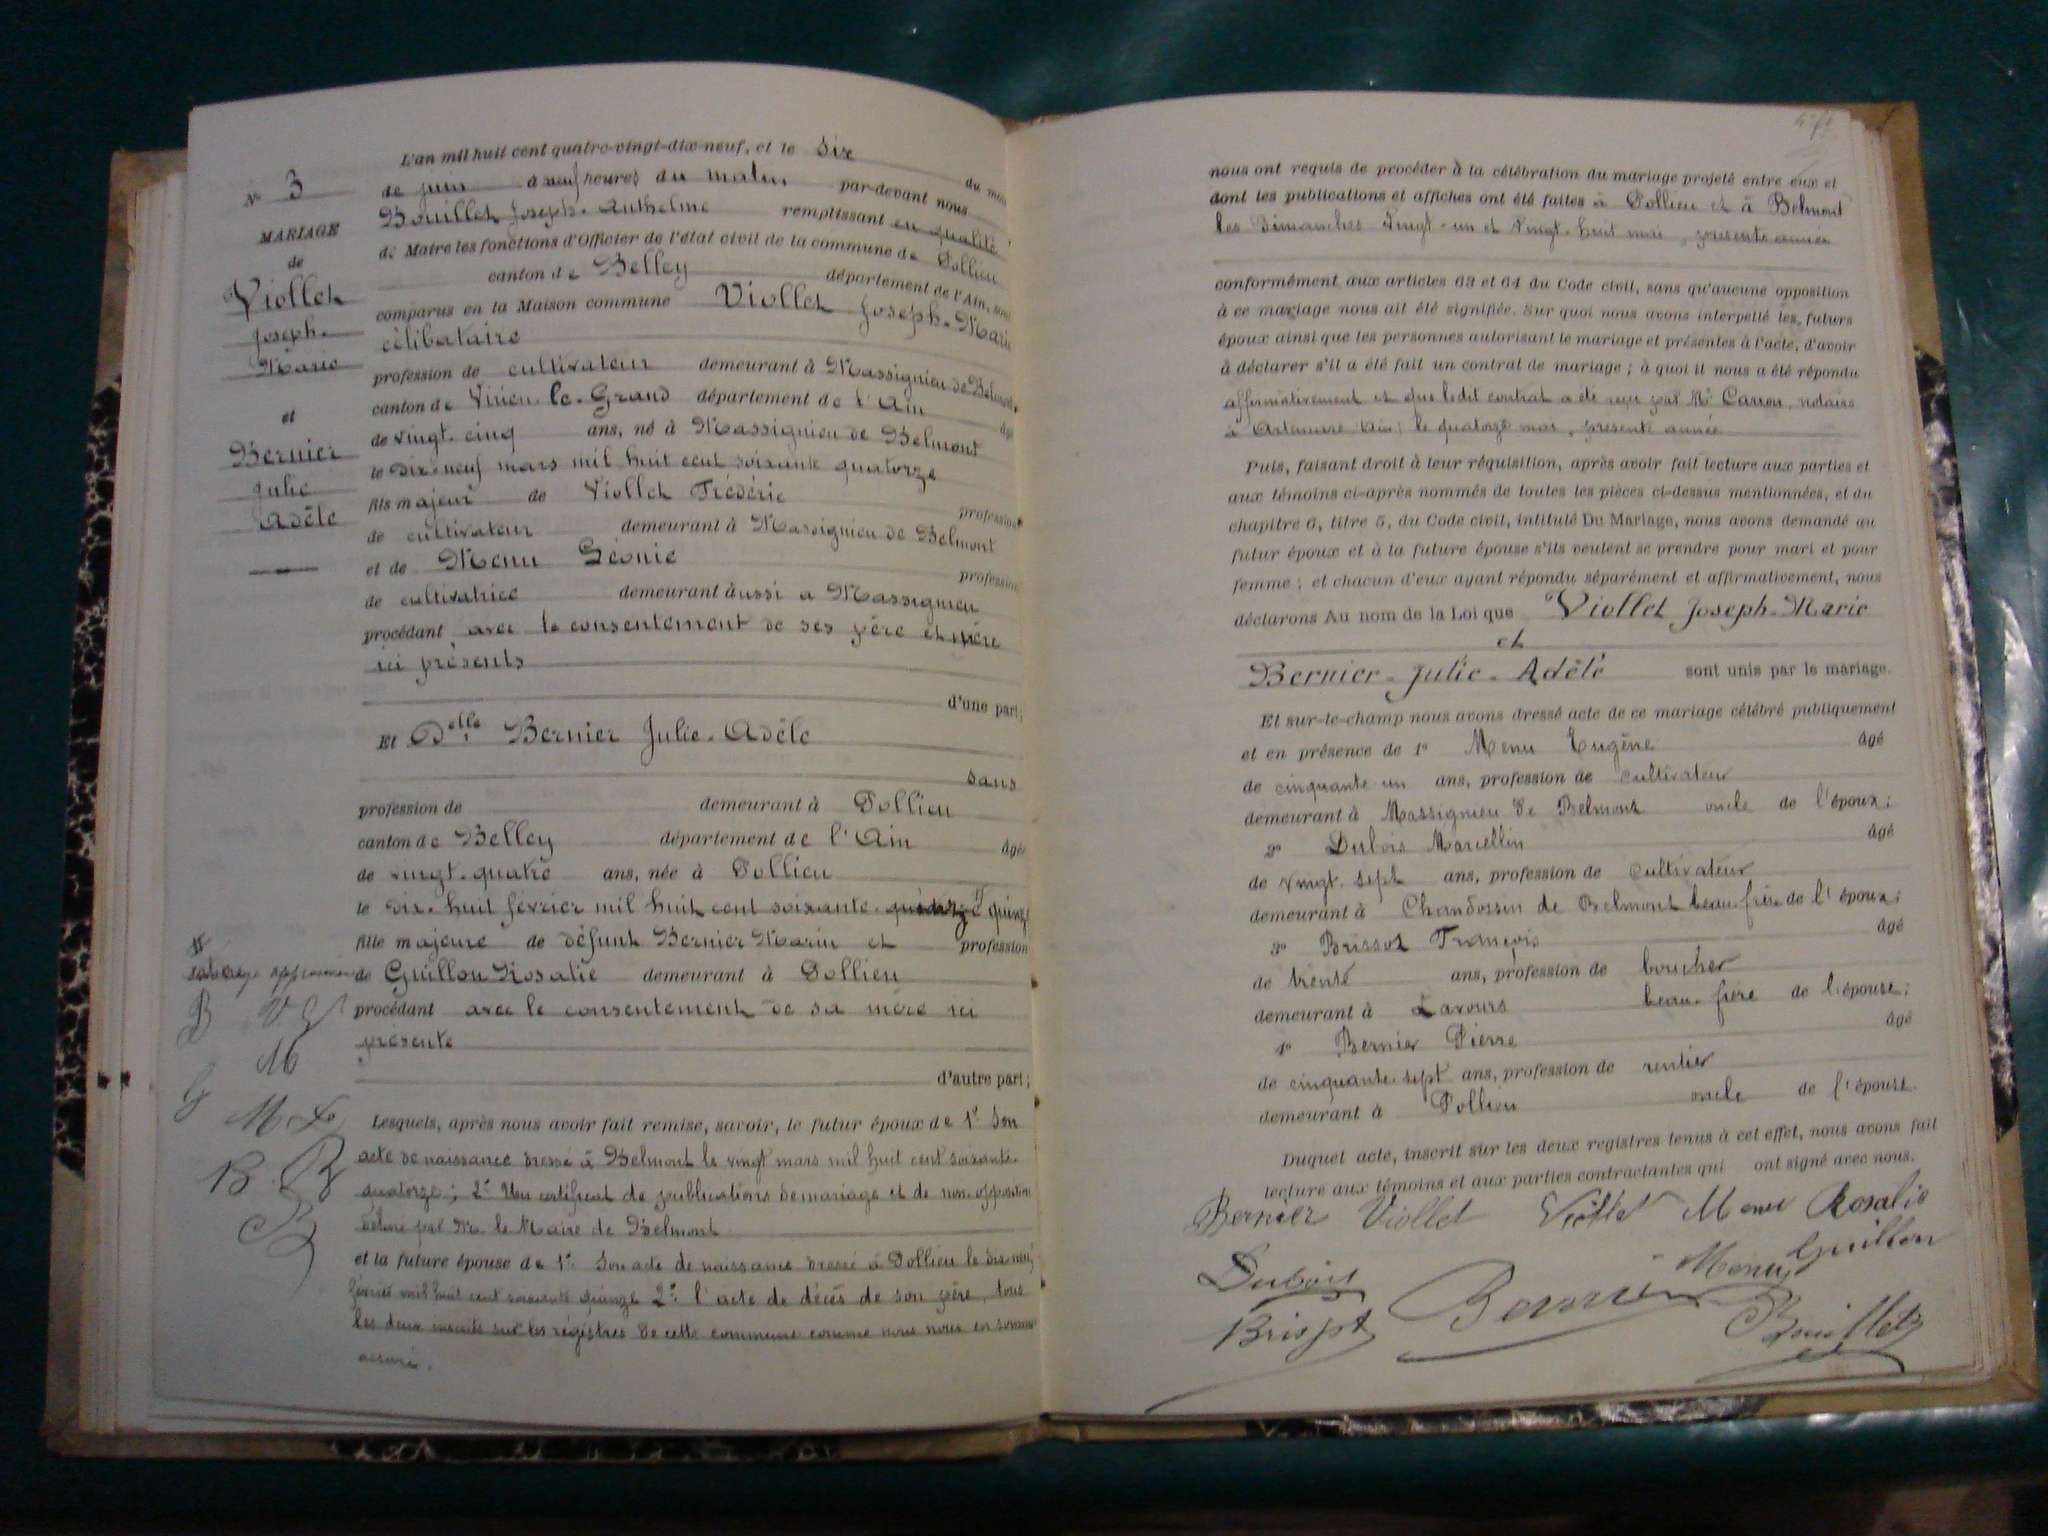 L'an mil huit cent quatre-vingt-dix-neuf, et le six du mois
N° 3
de juin à neuf heures du matin par-devant nous
Bouillet Joseph-Anthelme remplissant en qualité
MARIAGE
de Maire les fonctions d'Officier de l'état civil de la commune de Pollieu
de
canton de Belley département de l'Ain, sont
Viollet
comparus en la Maison commune Viollet Joseph-Marie
Joseph-
célibataire
Marie
profession de cultivateur demeurant à Massignieu de Belmont
canton de Virieu-le-Grand département de l'Ain âgé
et
de vingt-cinq ans, né à Massignieu de Belmont
Bernier
le dix-neuf mars mil huit cent soixante quatorze
Julie
fils majeur de Viollet Frédéric profession
Adèle
de cultivateur demeurant à Massignieu de Belmont
et de Menu Léonie profession
de cultivatrice demeurant aussi a Massignieu
procédant avec le consentement de ses père et mère
ici présents
d'une part;
Et Delle Bernier Julie-Adèle
sans
profession de demeurant à Pollieu
canton de Belley département de l'Ain âgée
de vingt-quatre ans, née à Pollieu
le dix-huit février mil huit cent soixante-quatorze quinze
fille majeure de défunt Bernier Marin et profession
de Guillon Rosalie demeurant à Pollieu
procédant avec le consentement de sa mère ici
B V
présente
M
d'autre part;
G
M
Lesquels, après nous avoir fait remise, savoir, le futur époux de 1° Son
B. B
acte de naissance dressé à Belmont le vingt mars mil huit cent soixante-
quatorze; 2° Un certificat de publications de mariage et de non-opposition
B
délivré par Mr le Maire de Belmont
et la future épouse de 1° Son acte de naissance dressé à Pollieu le dix-neuf
février mil huit cent soixante quinze 2° l'acte de décès de son père, tous
les deux inscrits sur les régistres de cette commune comme nous nous en sommes
assuré.
nous ont requis de procéder à la célébration du mariage projeté entre eux et
dont les publications et affiches ont été faites à Pollieu et à Belmont
les Dimanches Vingt-un et Vingt-huit mai, présente année
conformément aux articles 63 et 64 du Code civil, sans qu'aucune opposition
à ce mariage nous ait été signifiée. Sur quoi nous avons interpellé les futurs
époux ainsi que les personnes autorisant le mariage et présentes à l'acte, d'avoir
à déclarer s'il a été fait un contrat de mariage; à quoi il nous a été répondu
affirmativement et que ledit contrat a été reçu par Me Carron, notaire
à Artemare (Ain) le quatorze mai, présente année
Puis, faisant droit à leur réquisition, après avoir fait lecture aux parties et
aux témoins ci-après nommés de toutes les pièces ci-dessus mentionnées, et du
chapitre 6, titre 5, du Code civil, intitulé Du Mariage, nous avons demandé au
futur époux et à la future épouse s'ils veulent se prendre pour mari et pour
femme; et chacun d'eux ayant répondu séparément et affirmativement, nous
déclarons Au nom de la Loi que Viollet Joseph-Marie
et
Bernier-Julie-Adèle sont unis par le mariage.
Et sur-le-champ nous avons dressé acte de ce mariage célébré publiquement
et en présence de 1° Menu Eugène âgé
de cinquante un ans, profession de cultivateur
demeurant à Massignieu de Belmont oncle de l'époux;
2° Dubois Marcellin âgé
de vingt-sept ans, profession de cultivateur
demeurant à Chandossin de Belmont beau-frère de l'époux;
3° Brissot François âgé
de trente ans, profession de boucher
demeurant à Lavours beau-frère de l'épouse;
4° Bernier Pierre âgé
de cinquante-sept ans, profession de rentier
demeurant à Pollieu oncle de l'épouse.
Duquel acte, inscrit sur les deux registres tenus à cet effet, nous avons fait
lecture aux témoins et aux parties contractantes qui ont signé avec nous.
Bernier Viollet Viollet Menu Rosalie
Dubois Menu Guillon
Brissot Bernier Bouillet